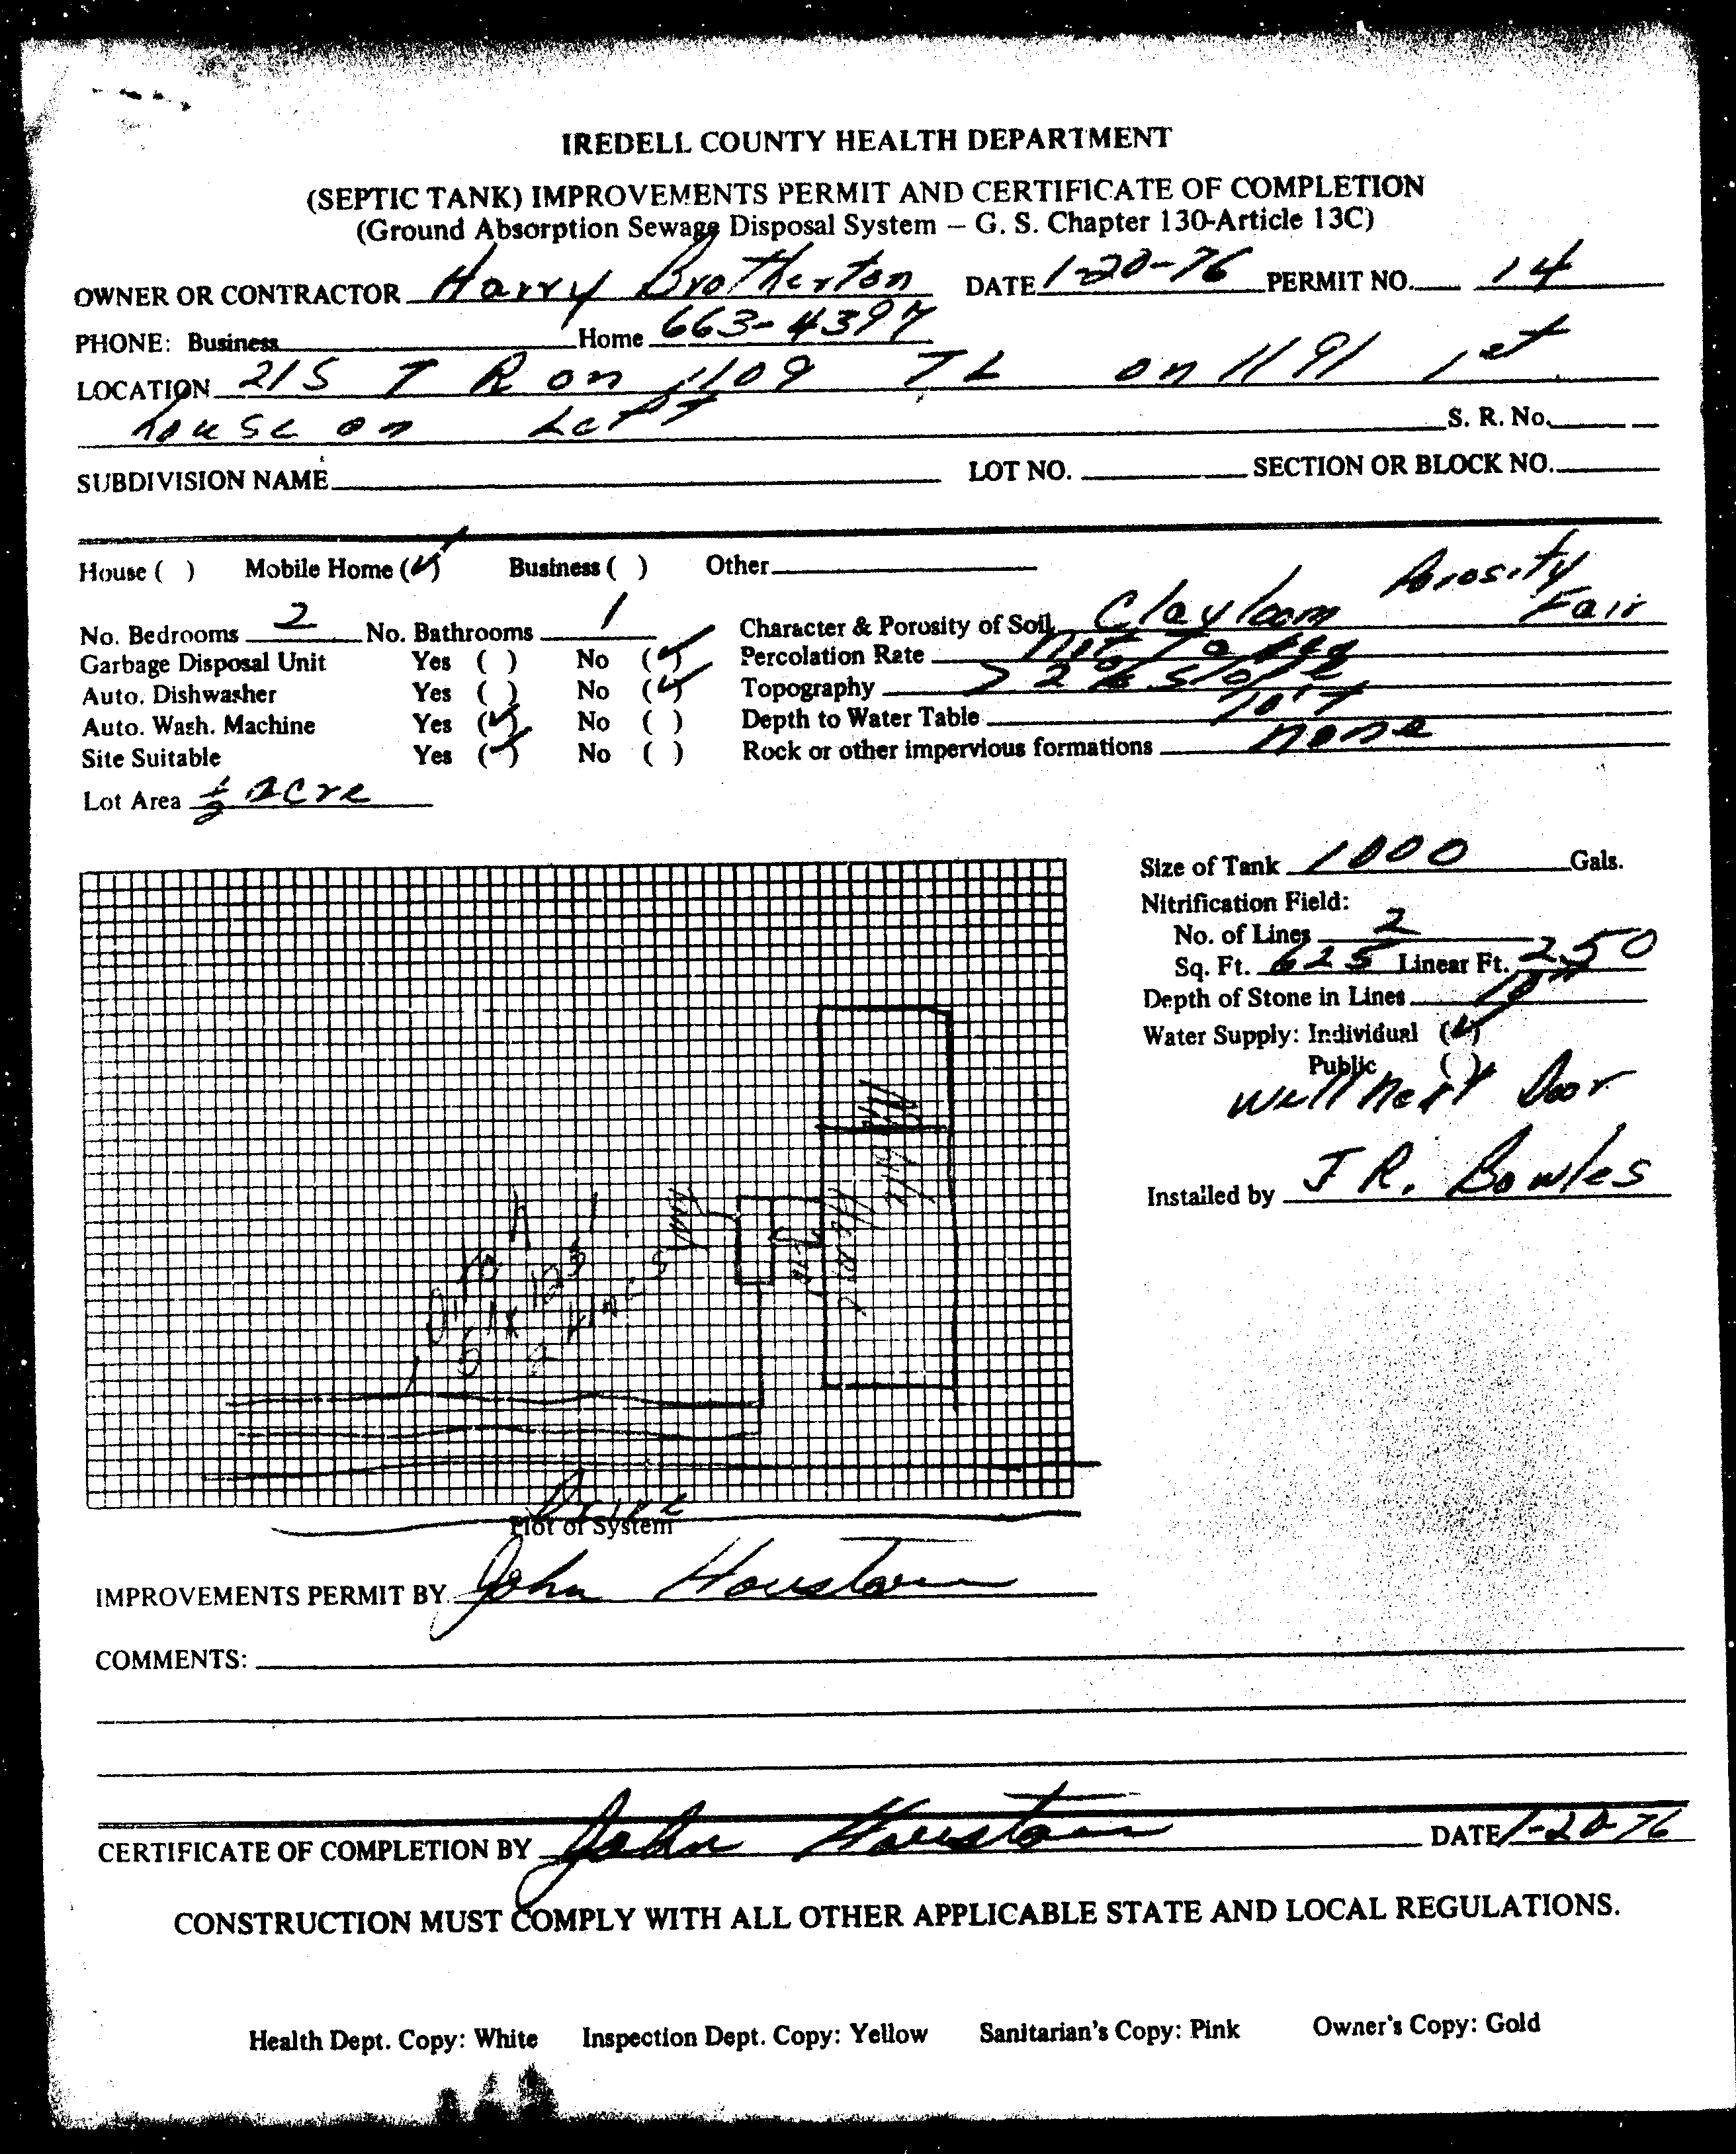 IREDELL COUNTY HEALTH DEPARTMENT
(SEPTIC TANK) IMPROVEMENTS PERMIT AND CERTIFICATE OF COMPLETION
(Ground Absorption Sewage Disposal System – G. S. Chapter 130-Article 13C)
OWNER OR CONTRACTOR Harry Brotherton DATE 1-20-76 PERMIT NO. 14
PHONE: Business Home 663-4397
LOCATION 21S T R on 1109 TL on 1191 1st
house on Left S. R. No.
SUBDIVISION NAME LOT NO. SECTION OR BLOCK NO.
House ( ) Mobile Home (✓) Business ( ) Other
Porosity
No. Bedrooms 2 No. Bathrooms 1 Character & Porosity of Soil Clay loam Fair
Garbage Disposal Unit Yes ( ) No (✓) Percolation Rate
Auto. Dishwasher Yes ( ) No (✓) Topography > 2% slope
Auto. Wash. Machine Yes (✓) No ( ) Depth to Water Table
Site Suitable Yes (✓) No ( ) Rock or other impervious formations none
Lot Area ½ acre
Size of Tank 1000 Gals.
Nitrification Field:
No. of Lines 2
Sq. Ft. 625 Linear Ft. 250
Depth of Stone in Lines
Water Supply: Individual (✓)
Public ( )
Well next Door
Installed by J R. Bowles
Mobile
Home
Lines
Drive
Plot of System
IMPROVEMENTS PERMIT BY John Houston
COMMENTS:
CERTIFICATE OF COMPLETION BY John Houston DATE 1-20-76
CONSTRUCTION MUST COMPLY WITH ALL OTHER APPLICABLE STATE AND LOCAL REGULATIONS.
Health Dept. Copy: White Inspection Dept. Copy: Yellow Sanitarian's Copy: Pink Owner's Copy: Gold